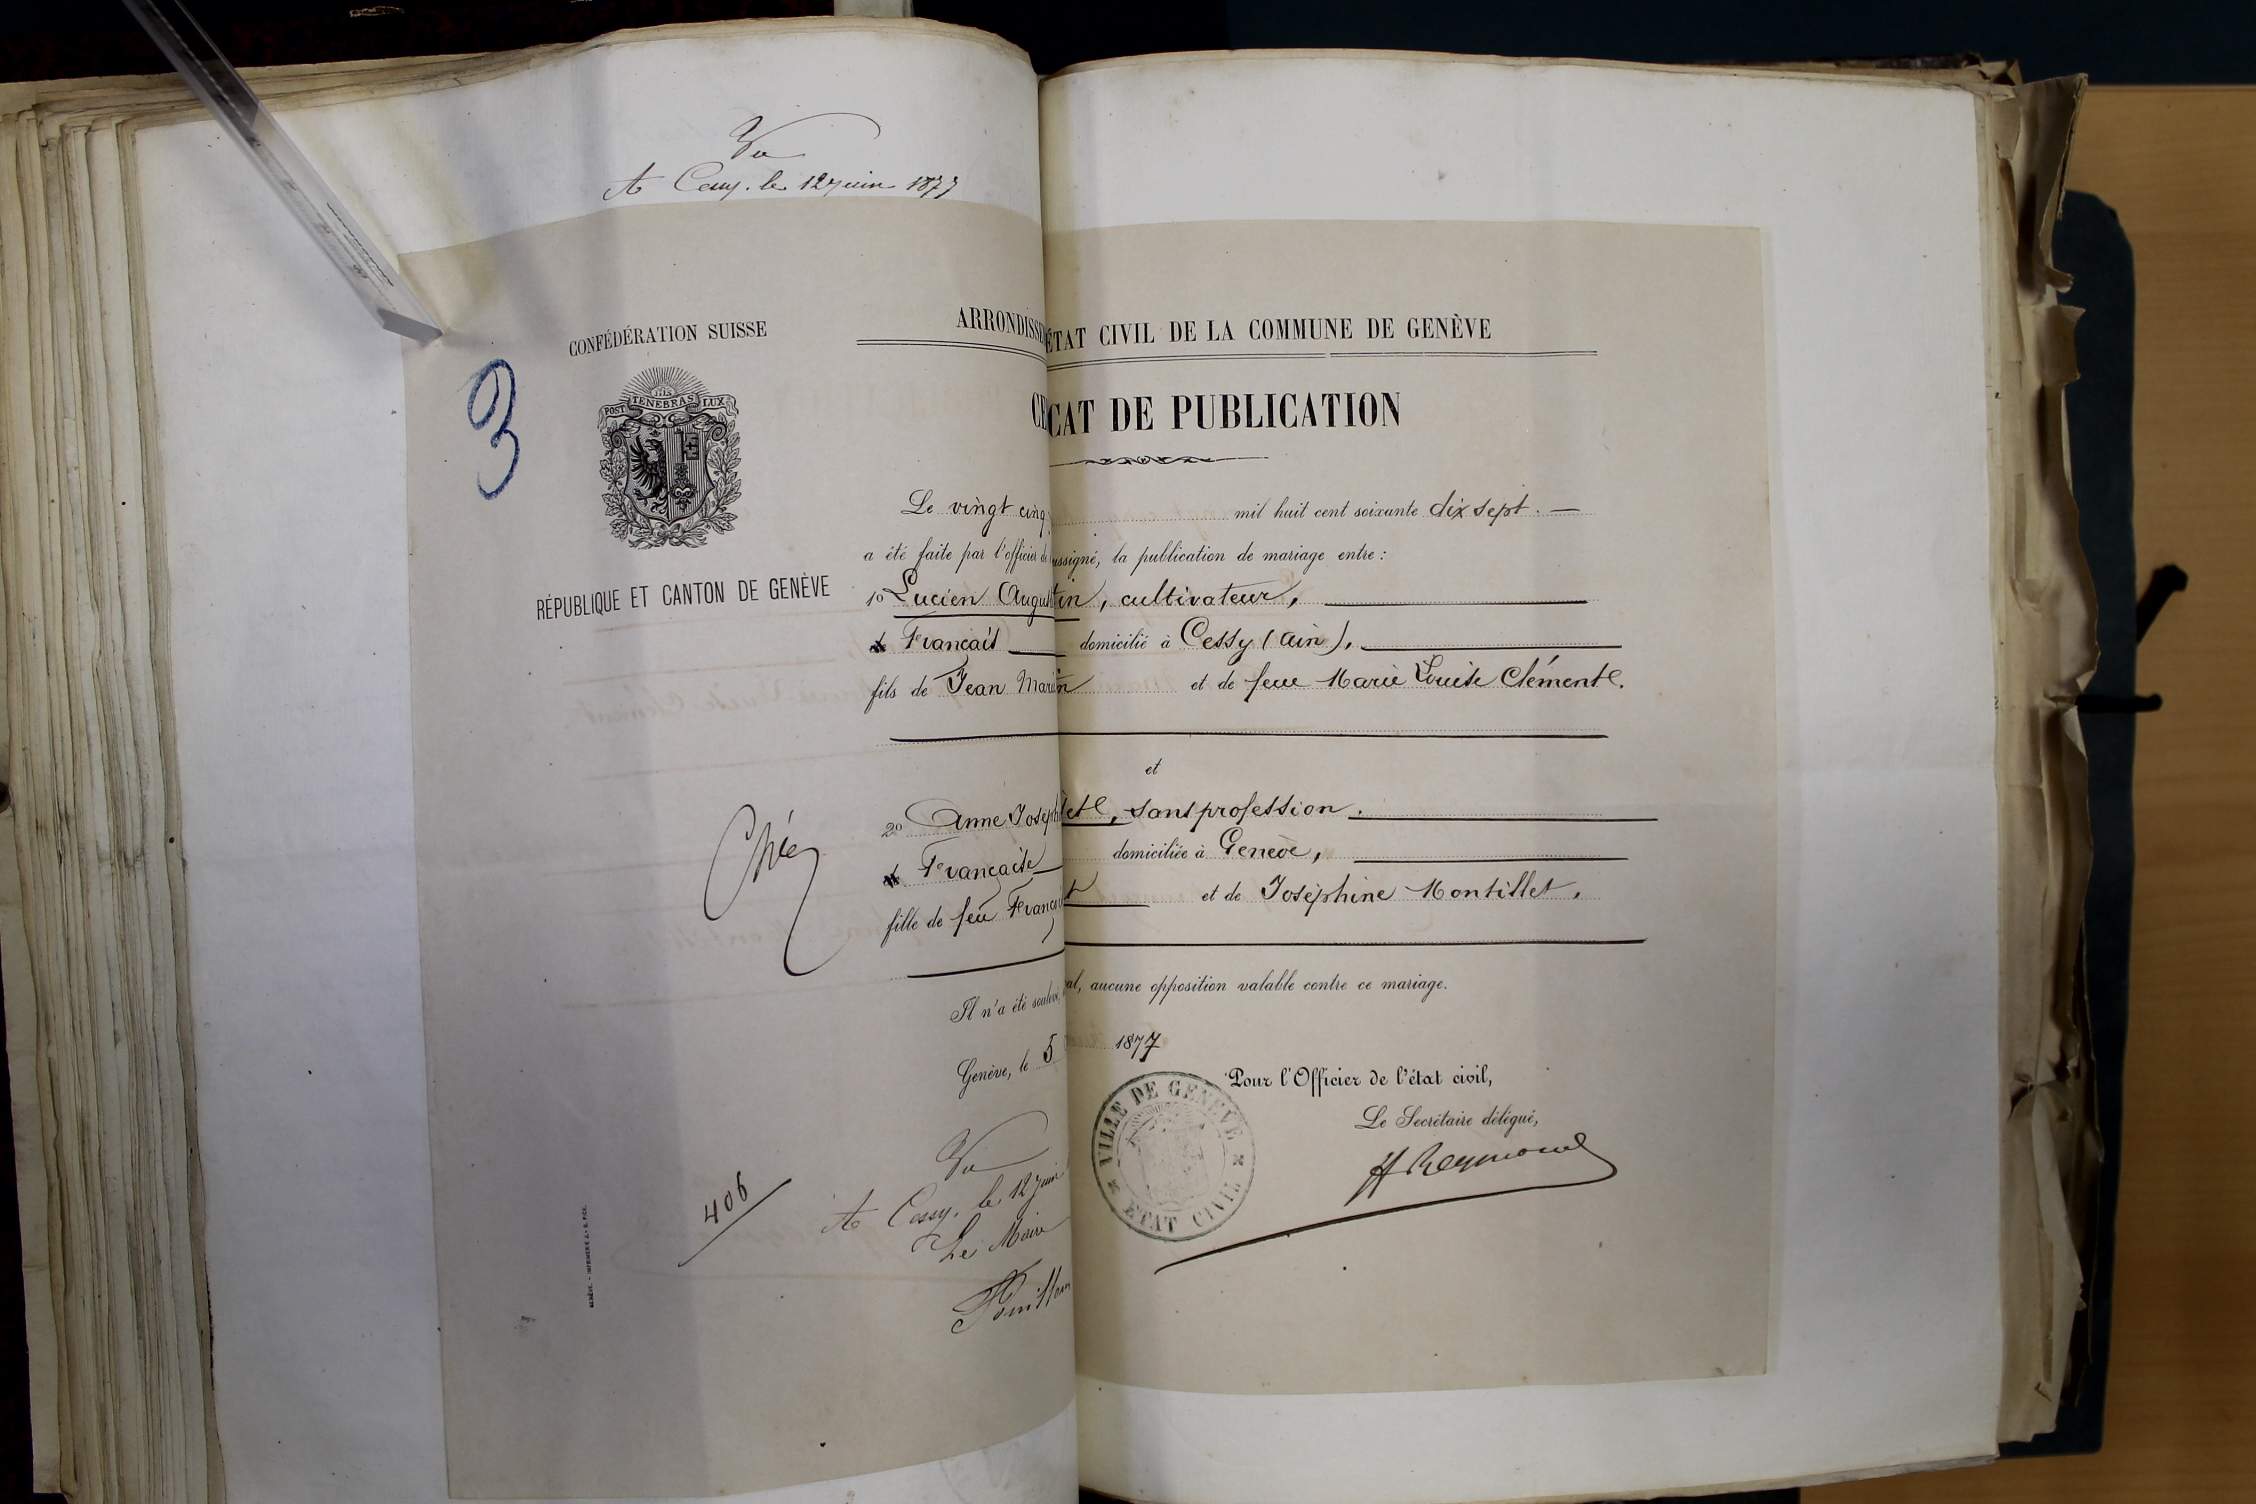 Vu
A Cessy. le 12 juin 1877
CONFÉDÉRATION SUISSE
3
POST TENEBRAS LUX
RÉPUBLIQUE ET CANTON DE GENÈVE
ARRONDISSE ÉTAT CIVIL DE LA COMMUNE DE GENÈVE
CE CAT DE PUBLICATION
Le vingt cinq mil huit cent soixante dix sept. —
a été faite par l'officier de ussigné, la publication de mariage entre :
1º Lucien Augustin, cultivateur,
Français domicilié à Cessy (Ain).
fils de Jean Marin et de feue Marie Louise Clément.
et
2º Anne Joseph te, sans profession.
Française domiciliée à Genève,
fille de feu Franço t et de Joséphine Montillet.
Il n'a été soulevé, al, aucune opposition valable contre ce mariage.
Genève, le 5 1877
Pour l'Officier de l'état civil,
Le Secrétaire délégué,
H Reymond
VILLE DE GENÈVE
ETAT CIVIL
406
Vu
A Cessy, le 12 juin
Le Maire
GENÈVE. - IMPRIMERIE